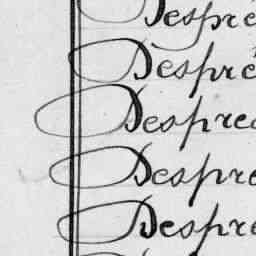 Despré
Despré
Despre
Despre
Despre